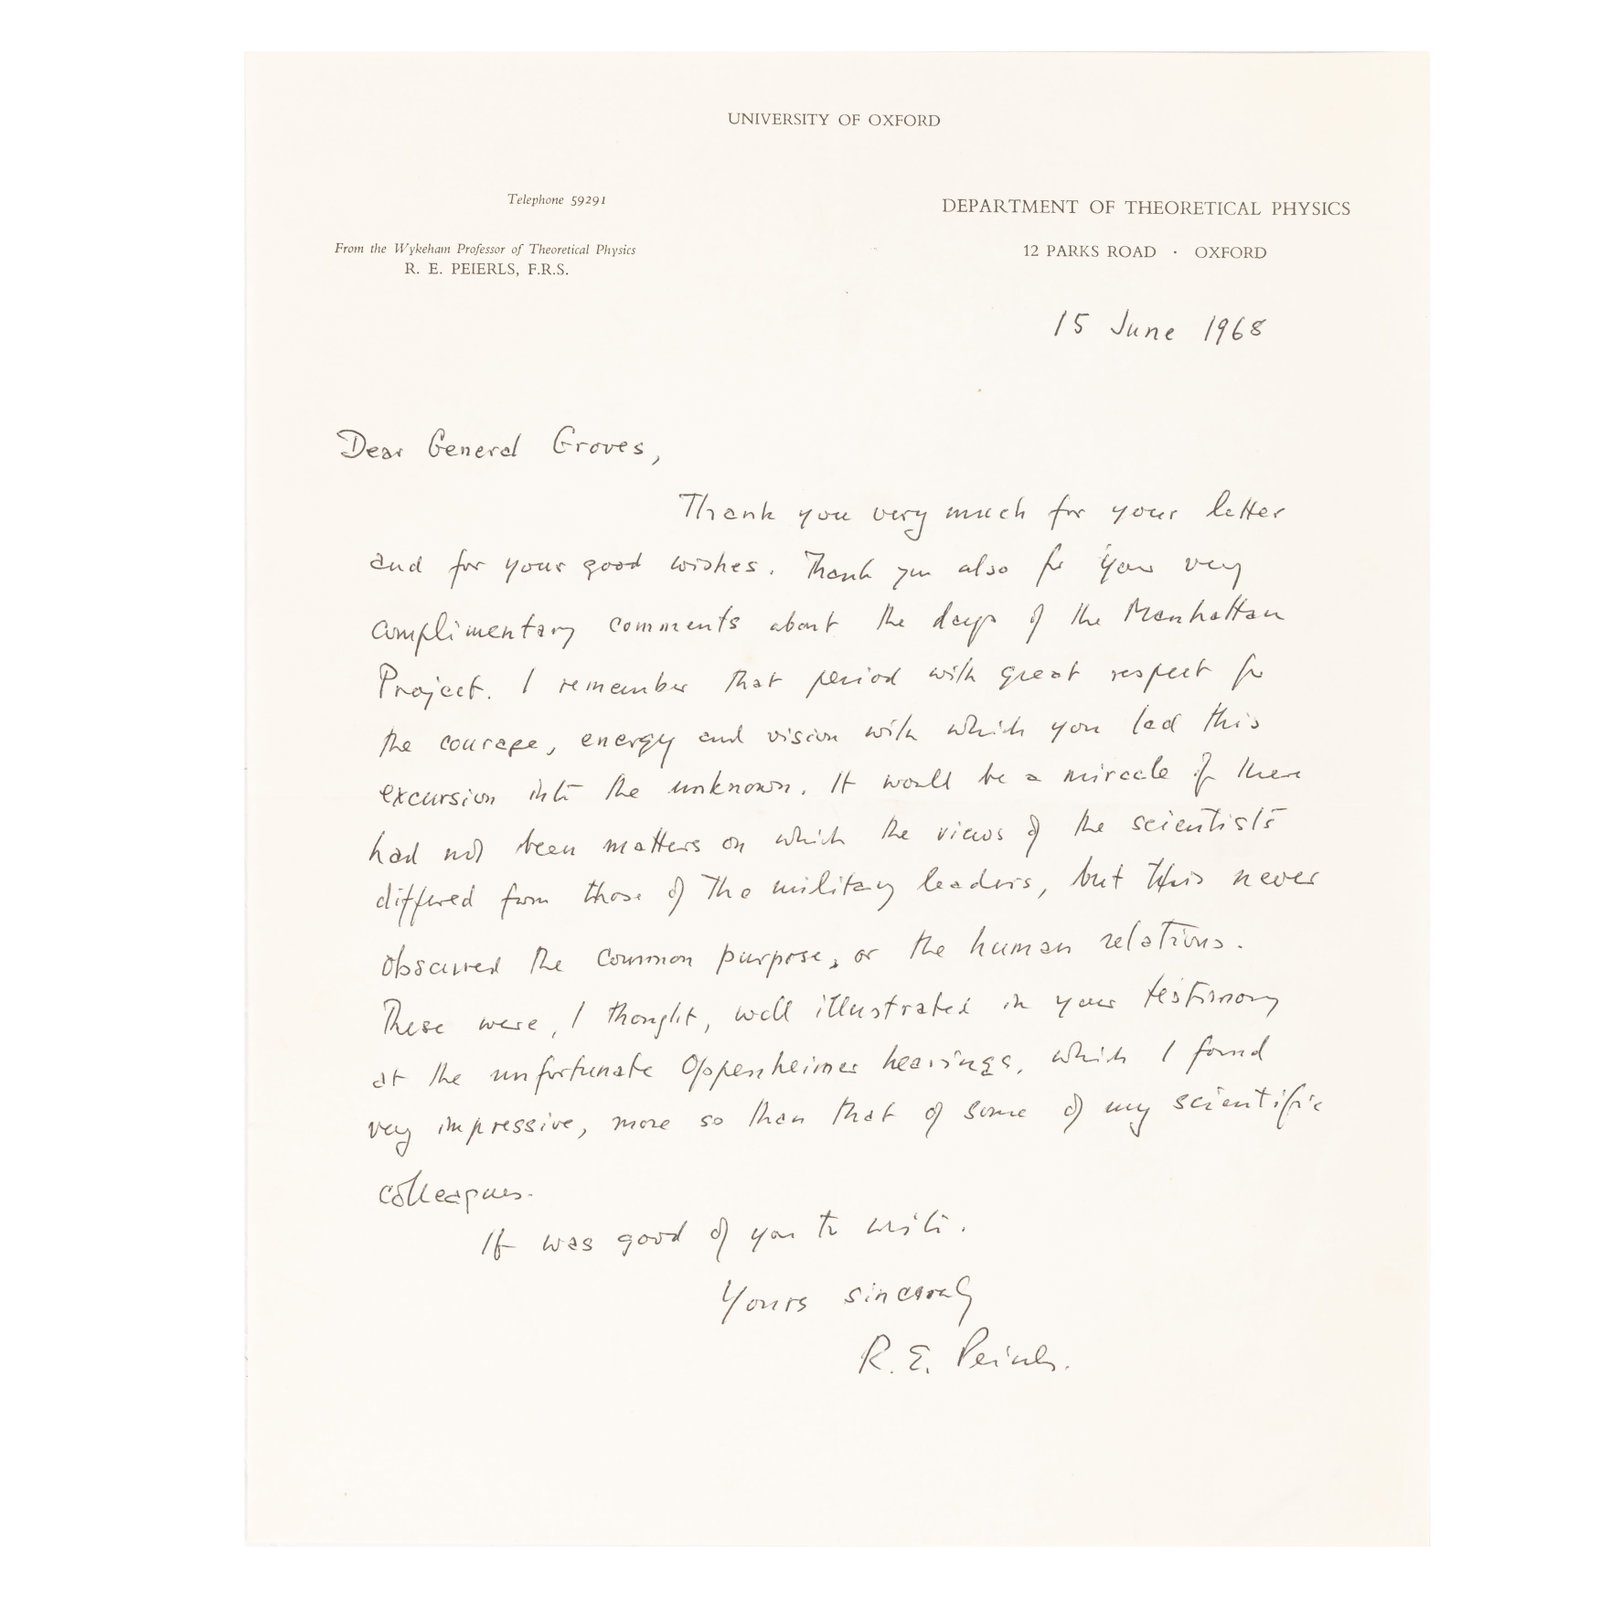 UNIVERSITY OF OXFORD
Telephone 59291
DEPARTMENT OF THEORETICAL PHYSICS
From the Wykeham Professor of Theoretical Physics
12 PARKS ROAD · OXFORD
R. E. PEIERLS, F.R.S.
15 June 1968
Dear General Groves,
Thank you very much for your letter
and for your good wishes. Thank you also for your very
complimentary comments about the days of the Manhattan
Project. I remember that period with great respect for
the courage, energy and vision with which you led this
excursion into the unknown. It would be a miracle if there
had not been matters on which the views of the scientists
differed from those of the military leaders, but this never
obscured the common purpose, or the human relations.
These were, I thought, well illustrated in your testimony
at the unfortunate Oppenheimer hearings, which I found
very impressive, more so than that of some of my scientific
colleagues.
It was good of you to write.
Yours sincerely
R. E. Peierls.